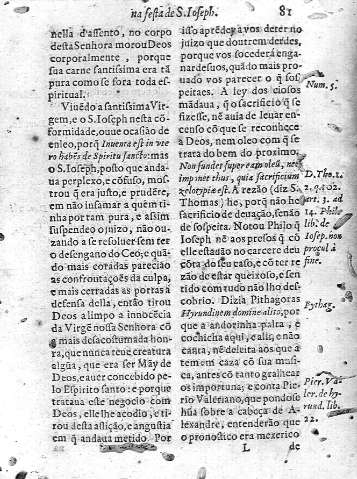 na festa de S. Ioseph. 81
nella d'assento, no corpo
desta Senhora morou Deos
corporalmente, porque
sua carne santissima era tã
pura como se fora toda es-
piritual.
Viuẽdo a santissima Vir-
gem, e o S. Ioseph nesta cõ-
formidade, ouue ocasião de
enleo, porq̃ Inuenta est in vte-
ro habẽs de Spiritu sancto: mas
o S. Ioseph, posto que anda-
ua perplexo, e cõfuso, mos-
trou q̃ era justo, e prudẽte,
em não infamar a quẽm ti-
nha por tam pura, e assim
suspendeo o juizo, não ou-
zando a se resoluer sem ter
o desengano do Ceo; e quã-
do mais coradas pareciao
as confrontaçoẽs da culpa,
e mais cerradas as portas à
defensa della, entào tirou
Deos a limpo a innocẽcia
da Virgẽ nossa Senhora cõ
a mais desacostumada hon-
ra, que nunca teue creatura
algũa, que era ser Mãy de
Deos, e auer concebido pe-
lo Espirito Santo: e porque
trataua este negocio com
Deos, elle lhe acodio, e ti-
rou desta aflição, e angustia
em q̃ andaua metido. Por
isso aprẽdey a vos deter no
juizo que doutrem derdes,
porque vos socederà engan-
nar de suos, quãdo mais pro-
uados vos parecer o q̃ sos-
peitaes. A ley dos ciosos
mãdaua, q̃ o sacrificio q̃ se
fizesse, nẽ auia de leuar en-
censo cõ que se reconhece
a Deos, nem oleo com q̃ se
trata do bem do proximo.
Non fundet super eam oleũ, nec
imponet thus, quia sacrificium
zelotypiæ est. A rezão (diz S.
Thomas) he, porq̃ não he
sacrificio de deuação, senão
de sospeita. Notou Philo q̃
Ioseph nẽ aos presos q̃ cõ
elle estauão no carcere deu
cõta do seu caso, e cõ ter re-
zão de estar queixoso, e sen
tido com tudo não lho des-
cobrio. Dizia Pithagoras
Hyrundinem domi ne alito, por
que a andorinha palra, e
cochicha aqui, e alis, e não
canta, nẽ deleita aos que a
tem em caza cõ sua musi-
ca, antes cõ tanto gralhar
os importuna; e conta Pie-
rio Valeriano, que pondose
hũa sobre a cabeça de A-
lexandre, entenderão que
o pronostico era mexerico
L de
Num. 5.
D. Tho. 1.
2. q. 102.
art. 3. ad
14. Philo
lib. de
Ioseph. non
procul à
fine.
Pythag.
Pier. Va-
ler. de hy-
rund. lib.
22.